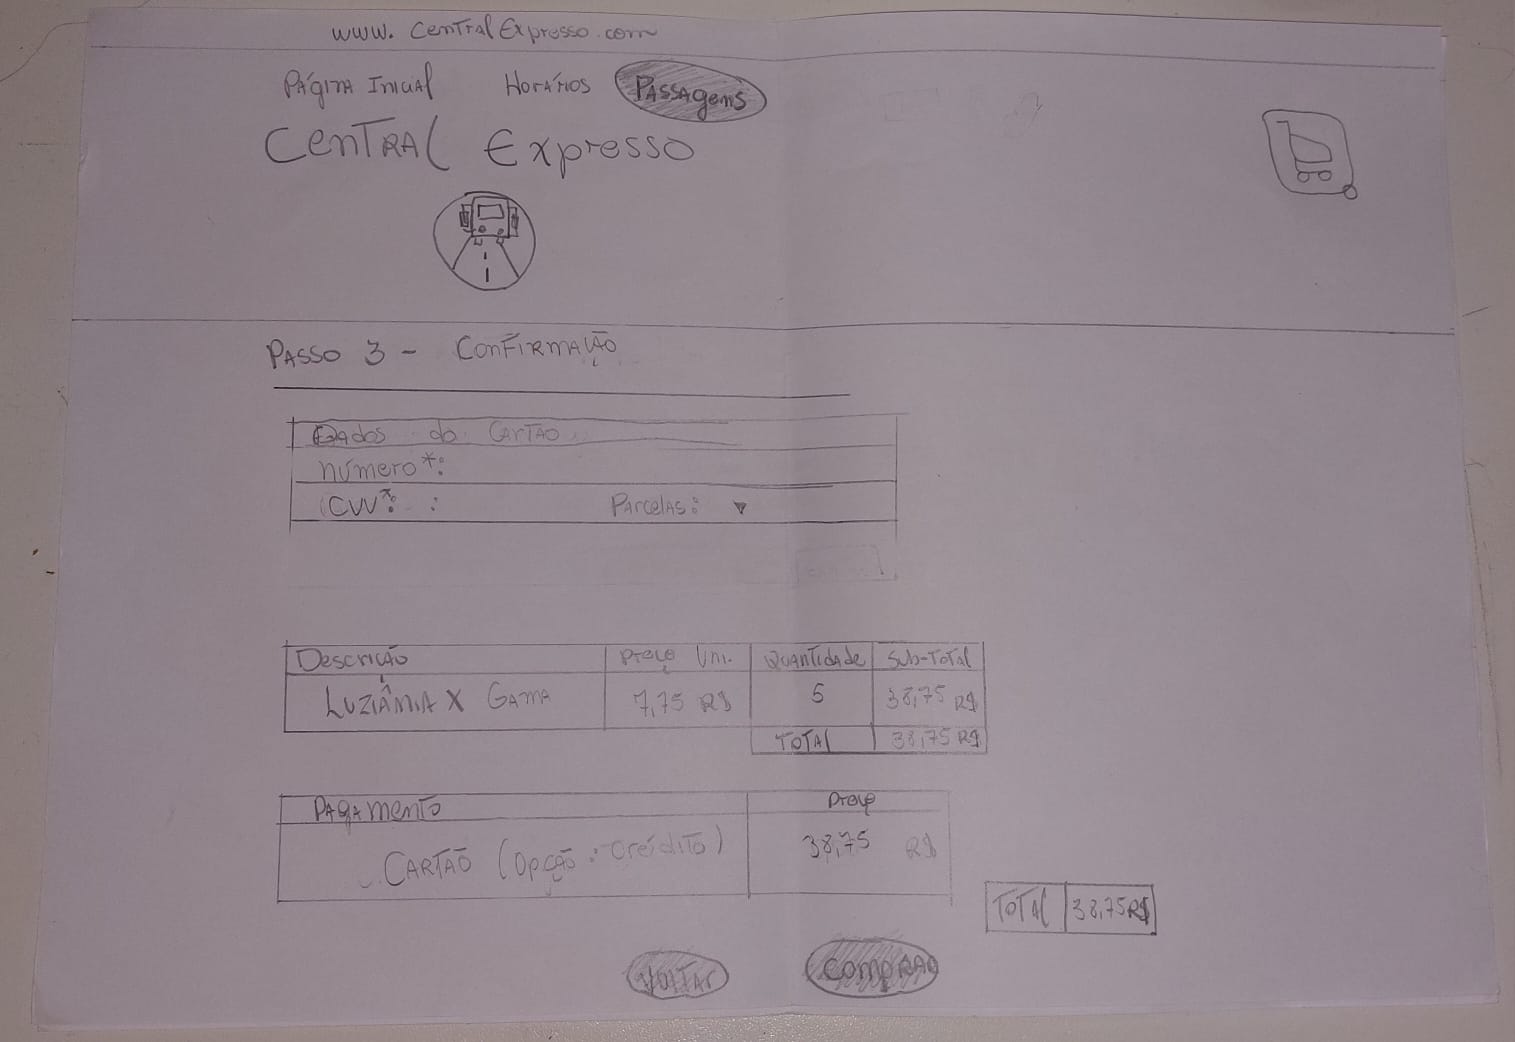 www. CentralExpresso.com
Página Inicial Horários Passagens
Central Expresso
Passo 3 - Confirmação
Dados do Cartão
número*:
CVV*: : Parcelas:
Descrição Preço Uni. Quantidade Sub-Total
Luziânia X Gama 7,75 R$ 5 38,75 R$
Total 38,75 R$
Pagamento Preço
Cartão (Opção: Crédito) 38,75 R$
Total 38,75 R$
Voltar Comprar